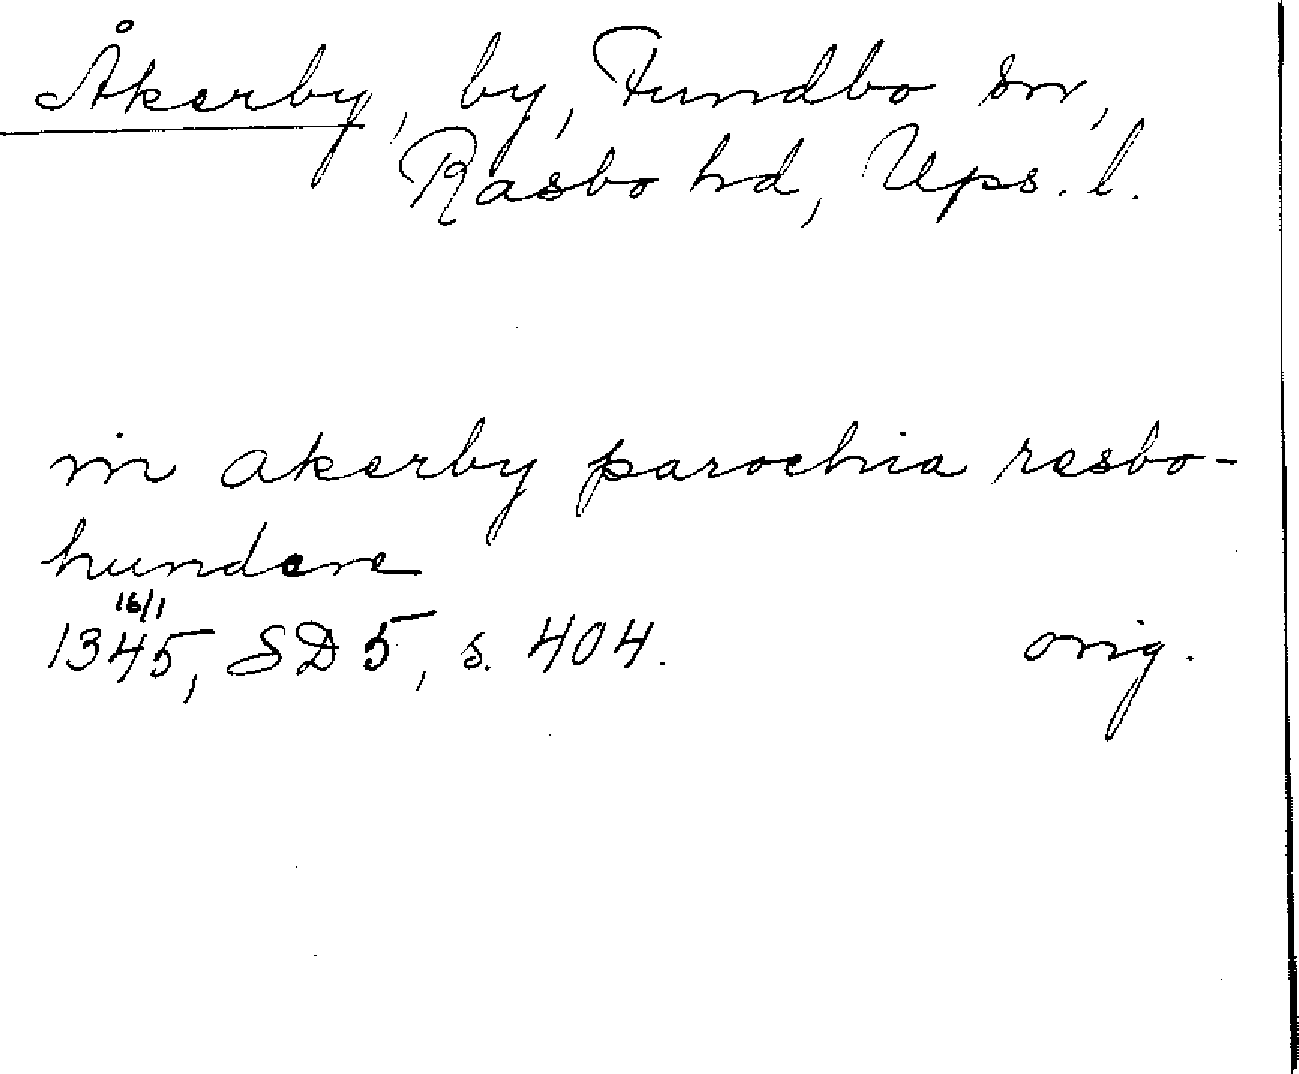 Åkerby, by, Fundbo sn,
Rasbo hd, Ups. l.
in akerby parochia rasbo-
hundere
16/1
1345, SD 5, s. 404. orig.